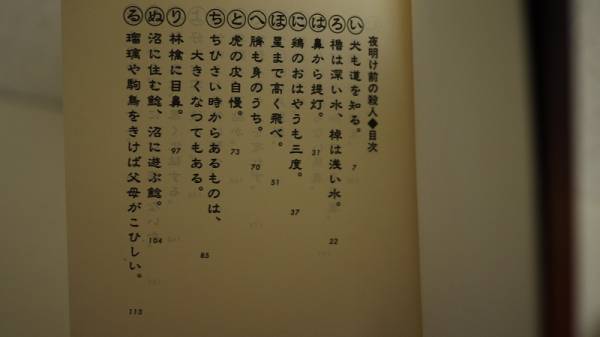 夜明け前の殺人◆目次
い 犬も道を知る。 7
ろ 櫓は深い水、棹は浅い水。 22
は 鼻から提灯。 31
に 鶏のおはやうも三度。 37
ほ 星まで高く飛べ。 51
へ 臍も身のうち。 70
と 虎の皮自慢。 73
ち ちひさい時からあるものは、
大きくなつてもある。 85
り 林檎に目鼻。 97
ぬ 沼に住む鯰、沼に遊ぶ鯰。 104
る 瑠璃や駒鳥をきけば父母がこひしい。 113